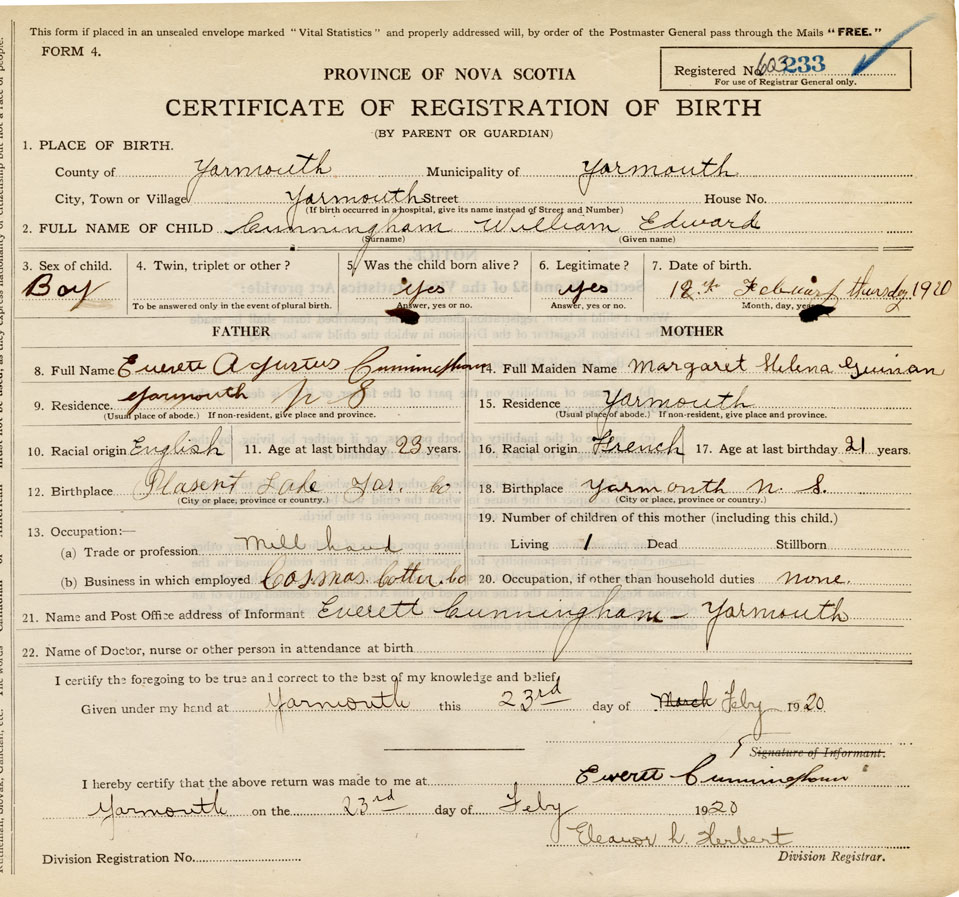 This form if placed in an unsealed envelope marked "Vital Statistics" and properly addressed will, by order of the Postmaster General pass through the Mails "FREE."
FORM 4.
Registered No. 603233
For use of Registrar General only.
PROVINCE OF NOVA SCOTIA
CERTIFICATE OF REGISTRATION OF BIRTH
(BY PARENT OR GUARDIAN)
1. PLACE OF BIRTH.
County of Yarmouth Municipality of Yarmouth
City, Town or Village Yarmouth Street House No.
(If birth occurred in a hospital, give its name instead of Street and Number)
2. FULL NAME OF CHILD Cunningham William Edward
(Surname) (Given name)
3. Sex of child. 4. Twin, triplet or other? 5. Was the child born alive? 6. Legitimate? 7. Date of birth.
Boy yes yes Thursday 1920
To be answered only in the event of plural birth. Answer, yes or no. Answer, yes or no. Month, day, year
FATHER MOTHER
8. Full Name Everete Agustus Cunningham 14. Full Maiden Name Margaret Helena Guinan
9. Residence. Yarmouth N S 15. Residence Yarmouth
(Usual place of abode.) If non-resident, give place and province. (Usual place of abode.) If non-resident, give place and province.
10. Racial origin English 11. Age at last birthday 23 years. 16. Racial origin French 17. Age at last birthday 21 years.
12. Birthplace Plasent Lake Yar. Co. 18. Birthplace Yarmouth N. S.
(City or place, province or country.) (City or place, province or country.)
13. Occupation:— 19. Number of children of this mother (including this child.)
(a) Trade or profession Mill hand Living 1 Dead Stillborn
(b) Business in which employed Cosmos Cotten Co 20. Occupation, if other than household duties none.
21. Name and Post Office address of Informant Everett Cunningham - Yarmouth
22. Name of Doctor, nurse or other person in attendance at birth
I certify the foregoing to be true and correct to the best of my knowledge and belief,
Given under my hand at Yarmouth this 23rd day of March Feby 1920
Signature of Informant.
I hereby certify that the above return was made to me at Everett Cunningham
Yarmouth on the 23rd day of Feby 1920
Eleanor h. Herbert
Division Registration No. Division Registrar.